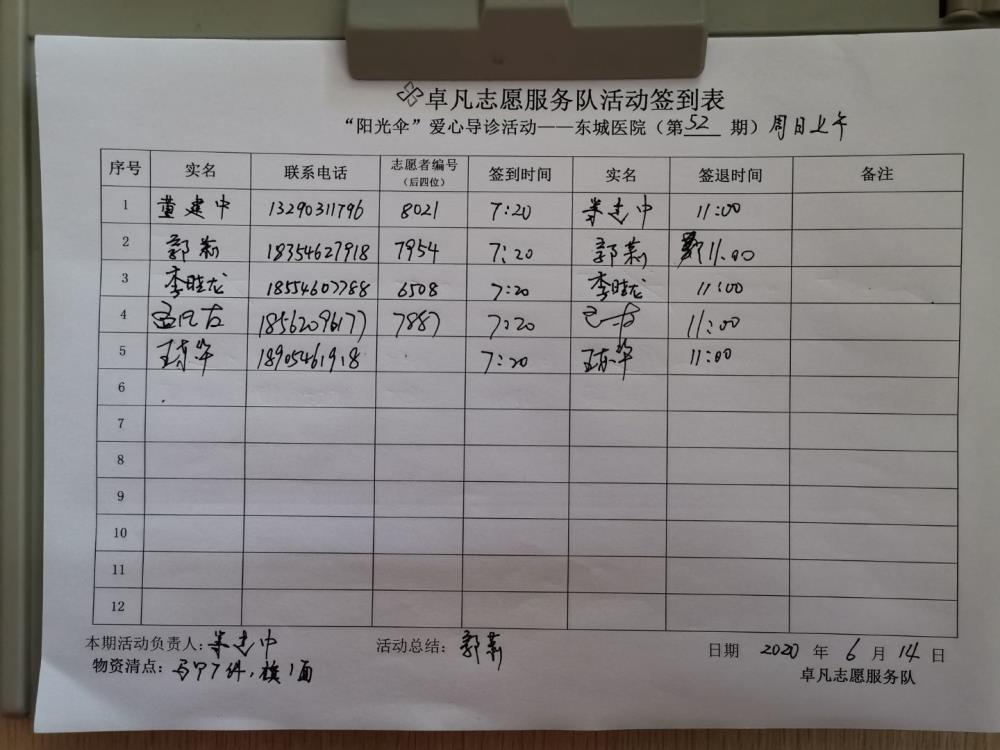 卓凡志愿服务队活动签到表
“阳光伞”爱心导诊活动——东城医院（第 52 期）周日上午
序号 实名 联系电话 志愿者编号（后四位） 签到时间 实名 签退时间 备注
1 董建中 13290311796 8021 7:20 董建中 11:00
2 郭莉 18354627918 7954 7:20 郭莉 11:00
3 李晓龙 18554607788 6508 7:20 李晓龙 11:00
4 18562096177 7887 7:20 11:00
5 18905461918 7:20 11:00
6
7
8
9
10
11
12
本期活动负责人: 董建中 活动总结: 郭莉 日期 2020 年 6 月 14 日
物资清点: 马甲7件，旗1面 卓凡志愿服务队